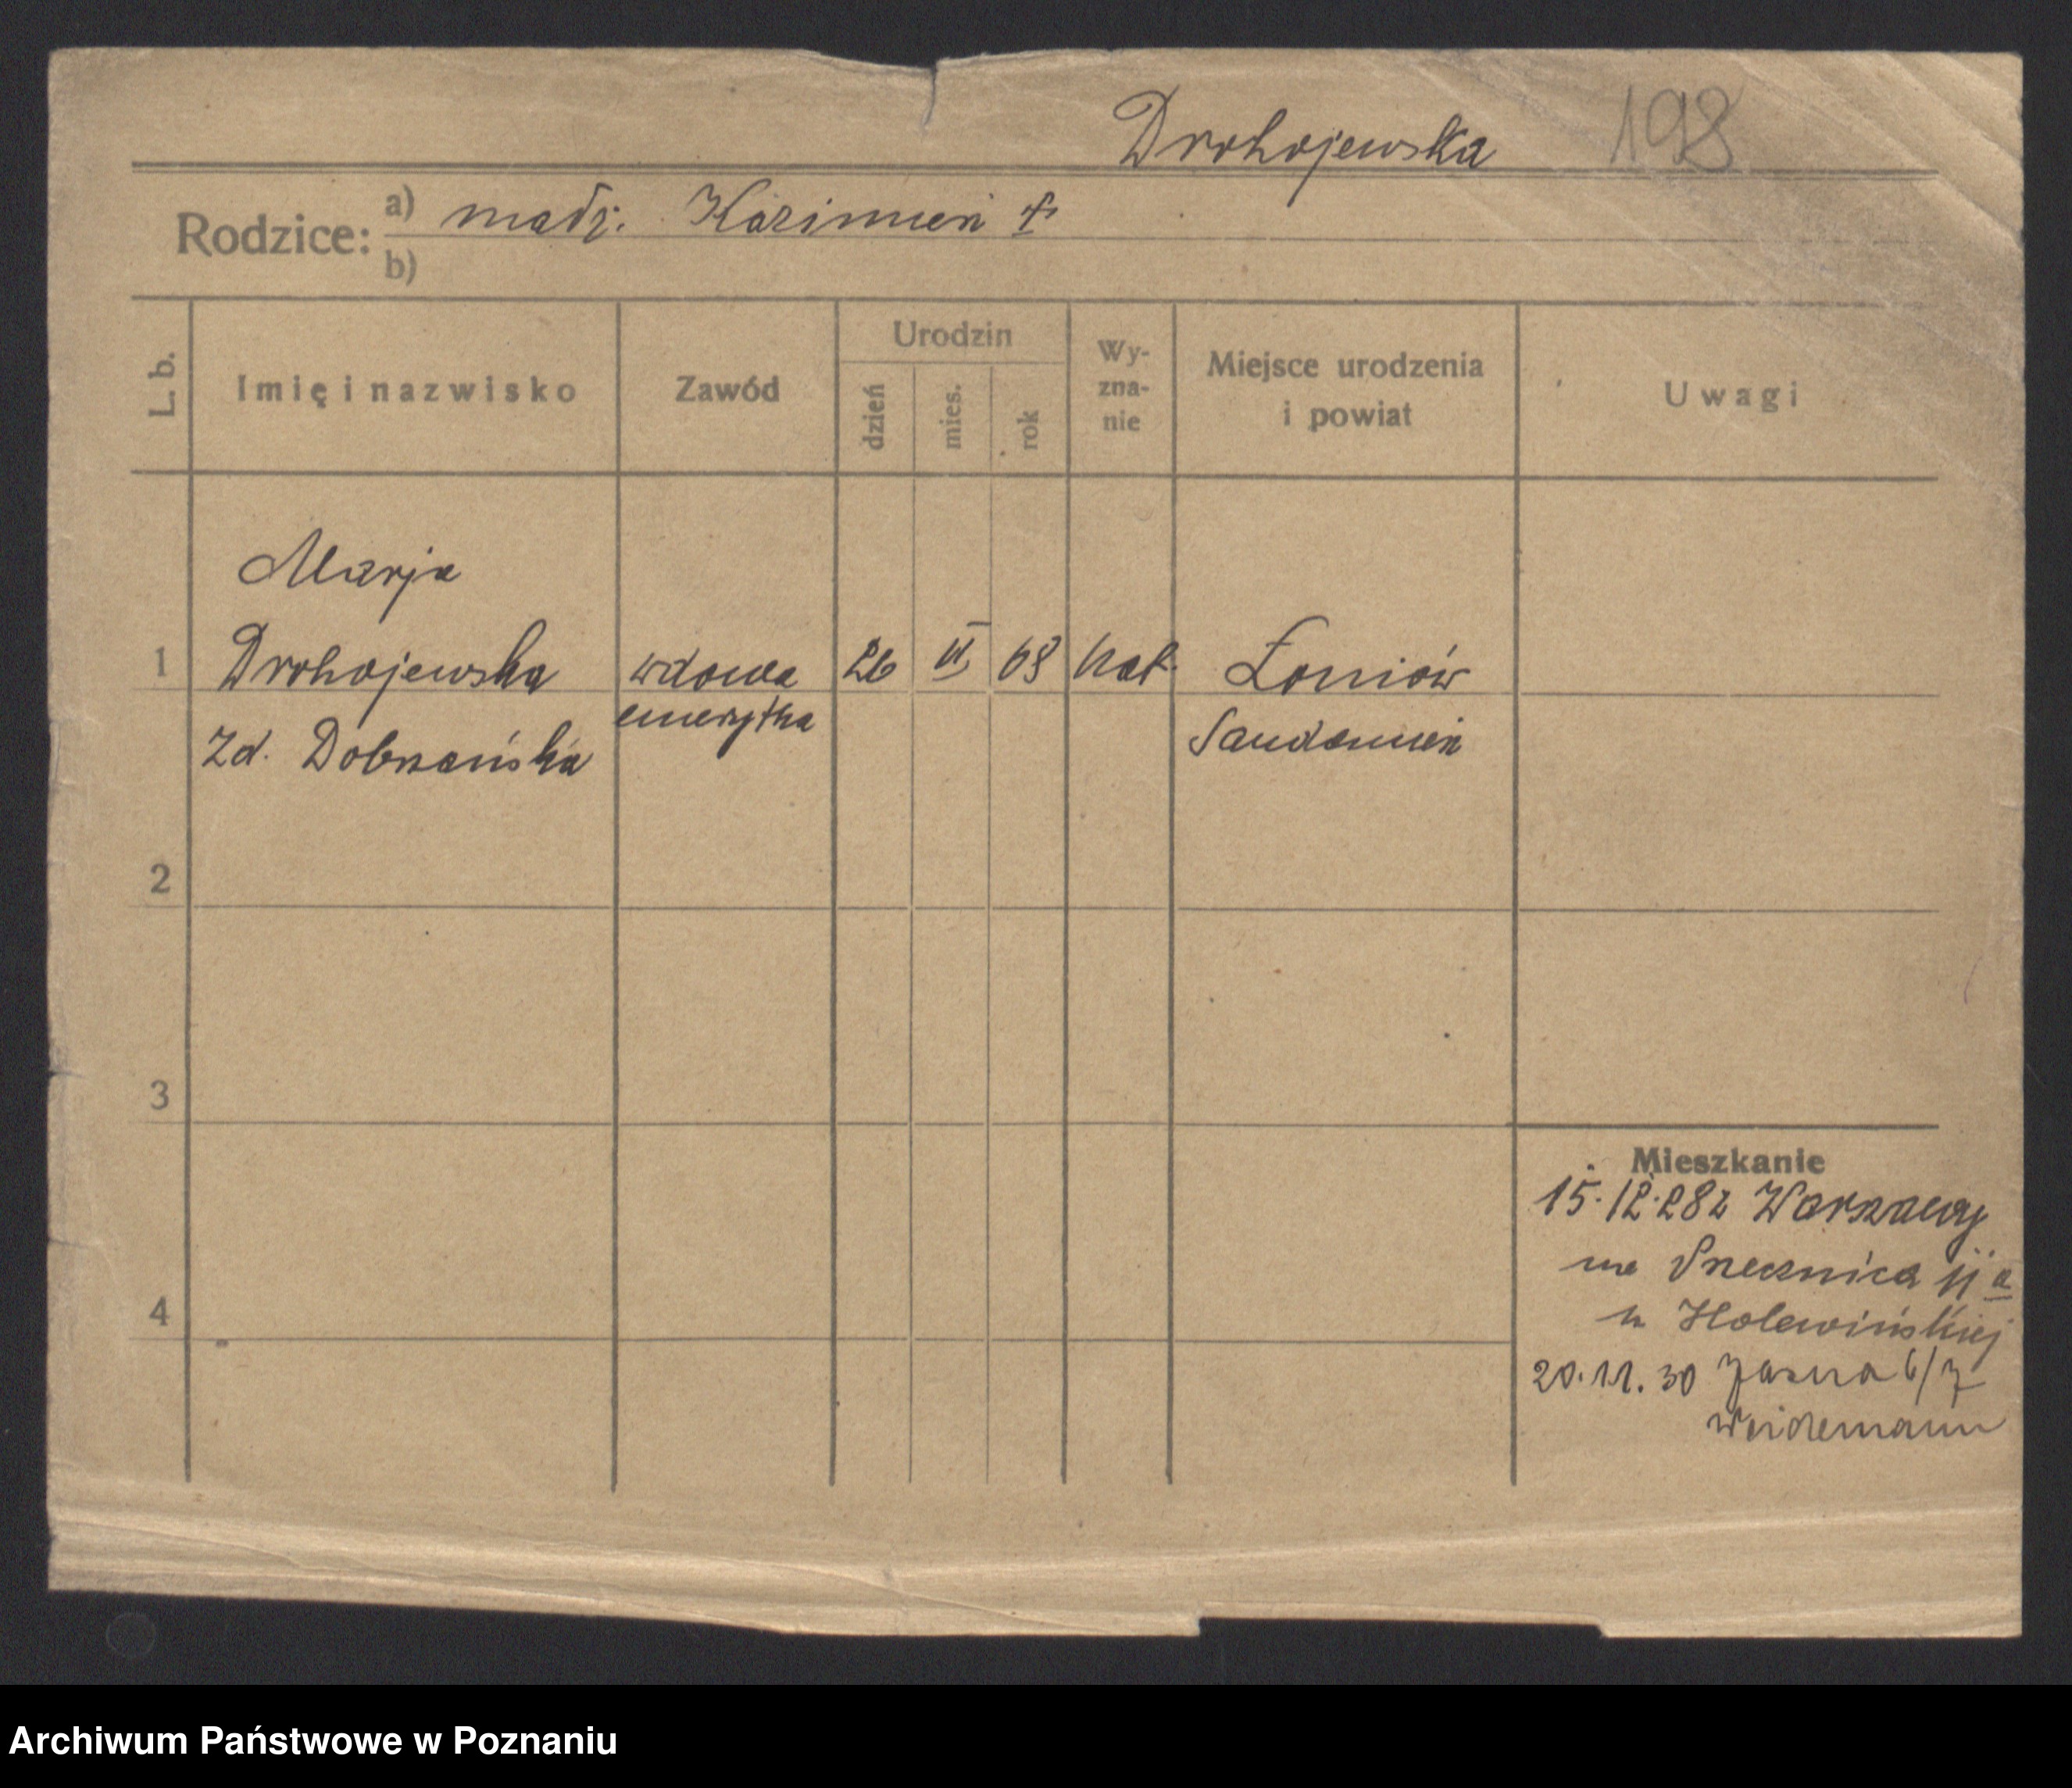 Drohojewska 198
Rodzice: a) małż. Kazimierz +
b)
L. b.
Imię i nazwisko
Zawód
Urodzin
dzień
mies.
rok
Wy-
zna-
nie
Miejsce urodzenia
i powiat
Uwagi
Marja
1 Drohojewska wdowa 26 II 68 kat. Łoniów
emerytka
Zd. Dobrzańska Sandomierz
2
3
4
Mieszkanie
15.12.28 z Warszawy
na Strzecznica 11a
u Holewińskiej
20.11.30 Jasna 6/7
Weidemann
Archiwum Państwowe w Poznaniu